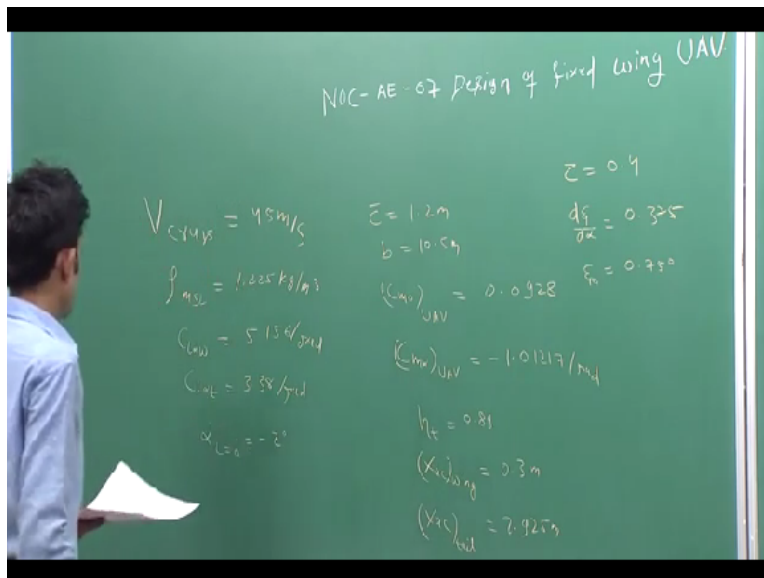 NOC-AE-07 Design of fixed wing UAV
V cruys = 45m/s
ρ MSL = 1.225 kg/m³
C Lαw = 5.156/rad
C Lαt = 3.38/rad
α L=0 = -2°
c̄ = 1.2m
b = 10.5m
(Cm₀)UAV = 0.0928
(Cmα)UAV = -1.01217/rad
ηt = 0.81
(Xac)wing = 0.3m
(Xac)tail = 2.925m
τ = 0.4
dε/dα = 0.325
ε₀ = 0.750